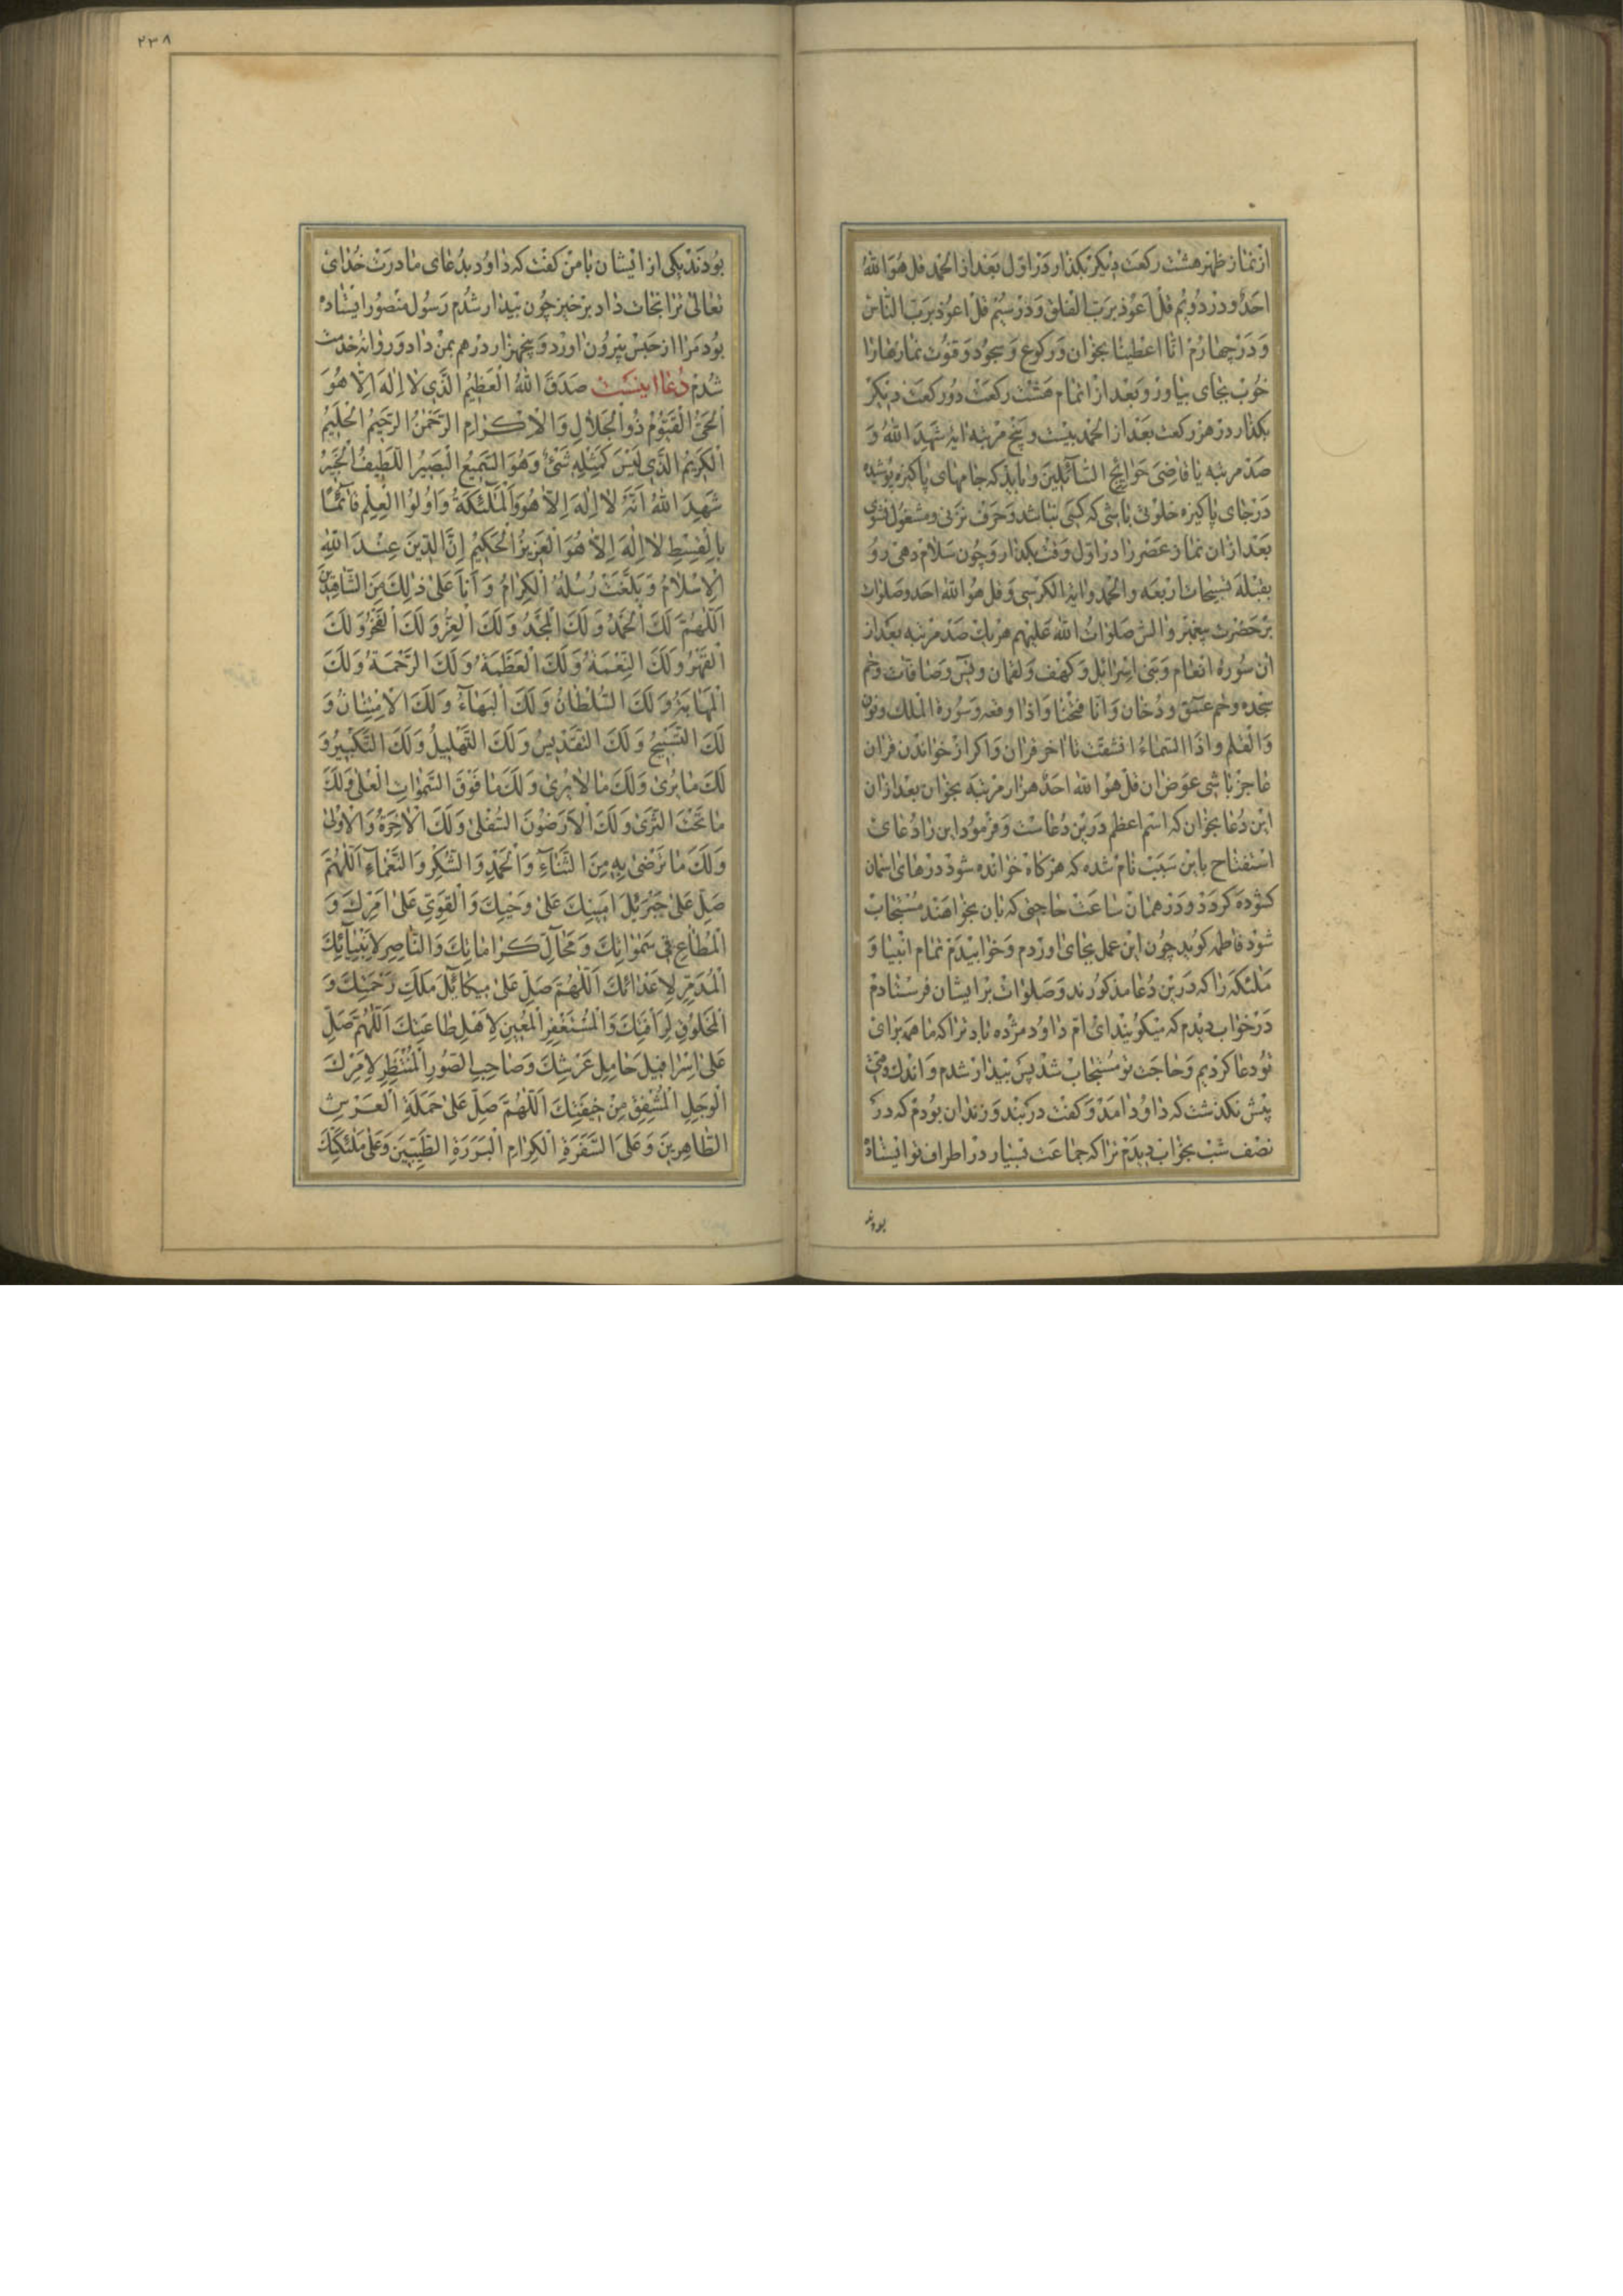 از نماز ظهر هشت رکعت دیکر بکذار در اول بعد از الحمد قل هو الله
احد و در دویم قل اعوذ برب الفلق و در سیم قل اعوذ برب الناس
و در چهارم انا اعطینا بخوان و رکوع و سجود و قنوت نمازها را
خوب بجای بیاور و بعد از اتمام هشت رکعت دو رکعت دیکر
بکذار در هر رکعت بعد از الحمد بیست و پنج مرتبه ایه شهد الله و
صد مرتبه یا قاضی حوایج السائلین و باید که جامهای پاکیزه پوشیده
در جای پاکیزه خلوتی باشی که کسی نباشد و حرف نزنی و مشغول نشوی
بعد از ان نماز عصر را در اول وقت بکذار و چون سلام دهی رو
بقبله تسبیحات اربعه و الحمد و ایة الکرسی و قل هو الله احد و صلوات
بر حضرت پیغمبر و الش صلوات الله علیهم هر یک صد مرتبه بعد از
ان سوره انعام و بنی اسرائیل و کهف و لقمان و یس و صافات و حم
سجده و حم عسق و دخان و انا فتحنا و اذا وقعه و سورة الملک و نون
و القلم و اذا السماء انشقت تا اخر قران و اکر از خواندن قران
عاجز باشی عوض ان قل هو الله احد هزار مرتبه بخوان بعد از ان
این دعا بخوان که اسم اعظم درین دعاست و فرمود این را دعای
استفتاح باین سبب نام شده که هرکاه خوانده شود درهای اسمان
کشوده کردد و در همان ساعت حاجتی که بان بخواهند مستجاب
شود فاطمه کوید چون این عمل بجای اوردم و خوابیدم تمام انبیا و
ملئکه را که درین دعا مذکورند و صلوات بر ایشان فرستادم
در خواب دیدم که میکویند ای ام داود مژده باد ترا که ما همه برای
تو دعا کردیم و حاجت تو مستجاب شد پس بیدار شدم و اندک وقتی
پیش نکذشت که داود امد و کفت در بند و زندان بودم که در
نصف شب بخواب دیدم ترا که جماعت بسیار در اطراف تو ایستاده
بودند
۲۳۸
بودند یکی از ایشان با من کفت که داود بدعای مادرت خدای
تعالی ترا نجات داد برخیز چون بیدار شدم رسول منصور ایستاده
بود مرا از حبس بیرون اورد و پنجهزار درهم بمن داد و روانه خدمت
شدم دعا اینست صَدَقَ اللهُ الْعَظِیمُ الَّذِی لا اِلهَ اِلاّ هُوَ
اَلْحَیُّ الْقَیُّومُ ذُو الْجَلالِ وَ الْاِکْرامِ الرَّحْمنُ الرَّحِیمُ الْحَلِیمُ
الْکَرِیمُ الَّذِی لَیْسَ کَمِثْلِهِ شَئٌ وَ هُوَ السَّمِیعُ الْبَصِیرُ اللَّطِیفُ الْخَبِیرُ
شَهِدَ اللهُ اَنَّهُ لا اِلهَ اِلاّ هُوَ وَ الْمَلئِکَةُ وَ اُولُوا الْعِلْمِ قآئِمًا
بِالْقِسْطِ لا اِلهَ اِلاّ هُوَ الْعَزِیزُ الْحَکِیمُ اِنَّ الدِّینَ عِنْدَ اللهِ
الْاِسْلامُ وَ بَلَّغَتْ رُسُلُهُ الْکِرامُ وَ اَنَا عَلی ذلِکَ مِنَ الشّاهِدِینَ
اَللّهُمَّ لَکَ الْحَمْدُ وَ لَکَ الْمَجْدُ وَ لَکَ الْعِزُّ وَ لَکَ الْفَخْرُ وَ لَکَ
الْقَهْرُ وَ لَکَ النِّعْمَةُ وَ لَکَ الْعَظَمَةُ وَ لَکَ الرَّحْمَةُ وَ لَکَ
الْمَهابَةُ وَ لَکَ السُّلْطانُ وَ لَکَ الْبَهآءُ وَ لَکَ الْاِمْتِنانُ وَ
لَکَ التَّسْبِیحُ وَ لَکَ التَّقْدِیسُ وَ لَکَ التَّهْلِیلُ وَ لَکَ التَّکْبِیرُ وَ
لَکَ ما یُری وَ لَکَ ما لا یُری وَ لَکَ ما فَوْقَ السَّمواتِ الْعُلی وَ لَکَ
ما تَحْتَ الثَّری وَ لَکَ الْاَرَضُونَ السُّفْلی وَ لَکَ الْاخِرَةُ وَ الْاُولی
وَ لَکَ ما تَرْضی بِهِ مِنَ الثَّنآءِ وَ الْحَمْدِ وَ الشُّکْرِ وَ النَّعْمآءِ اَللّهُمَّ
صَلِّ عَلی جَبْرَئِیلَ اَمِینِکَ عَلی وَحْیِکَ وَ الْقَوِیِّ عَلی اَمْرِکَ وَ
الْمُطاعِ فِی سَمواتِکَ وَ مَحآلِّ کَراماتِکَ وَ النّاصِرِ لِاَنْبِیآئِکَ
الْمُدَمِّرِ لِاَعْدائِکَ اَللّهُمَّ صَلِّ عَلی مِیکائِیلَ مَلَکِ رَحْمَتِکَ وَ
الْمَخْلُوقِ لِرَأْفَتِکَ وَ الْمُسْتَغْفِرِ الْمُعِینِ لِاَهْلِ طاعَتِکَ اَللّهُمَّ صَلِّ
عَلی اِسْرافِیلَ حامِلِ عَرْشِکَ وَ صاحِبِ الصُّورِ الْمُنْتَظِرِ لِاَمْرِکَ
الْوَجِلِ الْمُشْفِقِ مِنْ خِیفَتِکَ اَللّهُمَّ صَلِّ عَلی حَمَلَةِ الْعَرْشِ
الطّاهِرِینَ وَ عَلَی السَّفَرَةِ الْکِرامِ الْبَرَرَةِ الطَّیِّبِینَ وَ عَلی مَلئِکَتِکَ